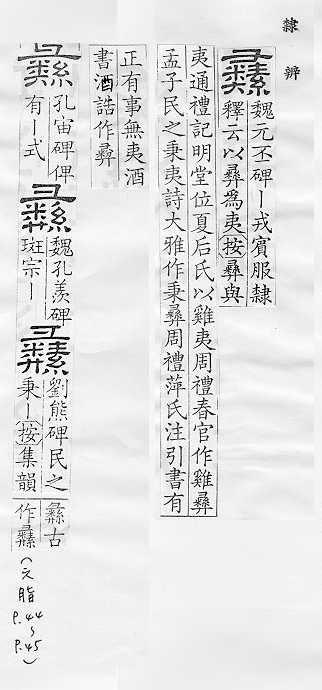 隸辨
彝
魏元丕碑丨戎賓服隸
釋云以彝爲夷按彝與
夷通禮記明堂位夏后氏以雞夷周禮春官作雞彝
孟子民之秉夷詩大雅作秉彝周禮萍氏注引書有
正有事無夷酒
書酒誥作彝
彝
孔宙碑俾
有丨式
彝
魏孔羨碑
班宗丨
彝
劉熊碑民之
秉丨按集韻
彝古
作彞
(六脂 P.44~P.45)